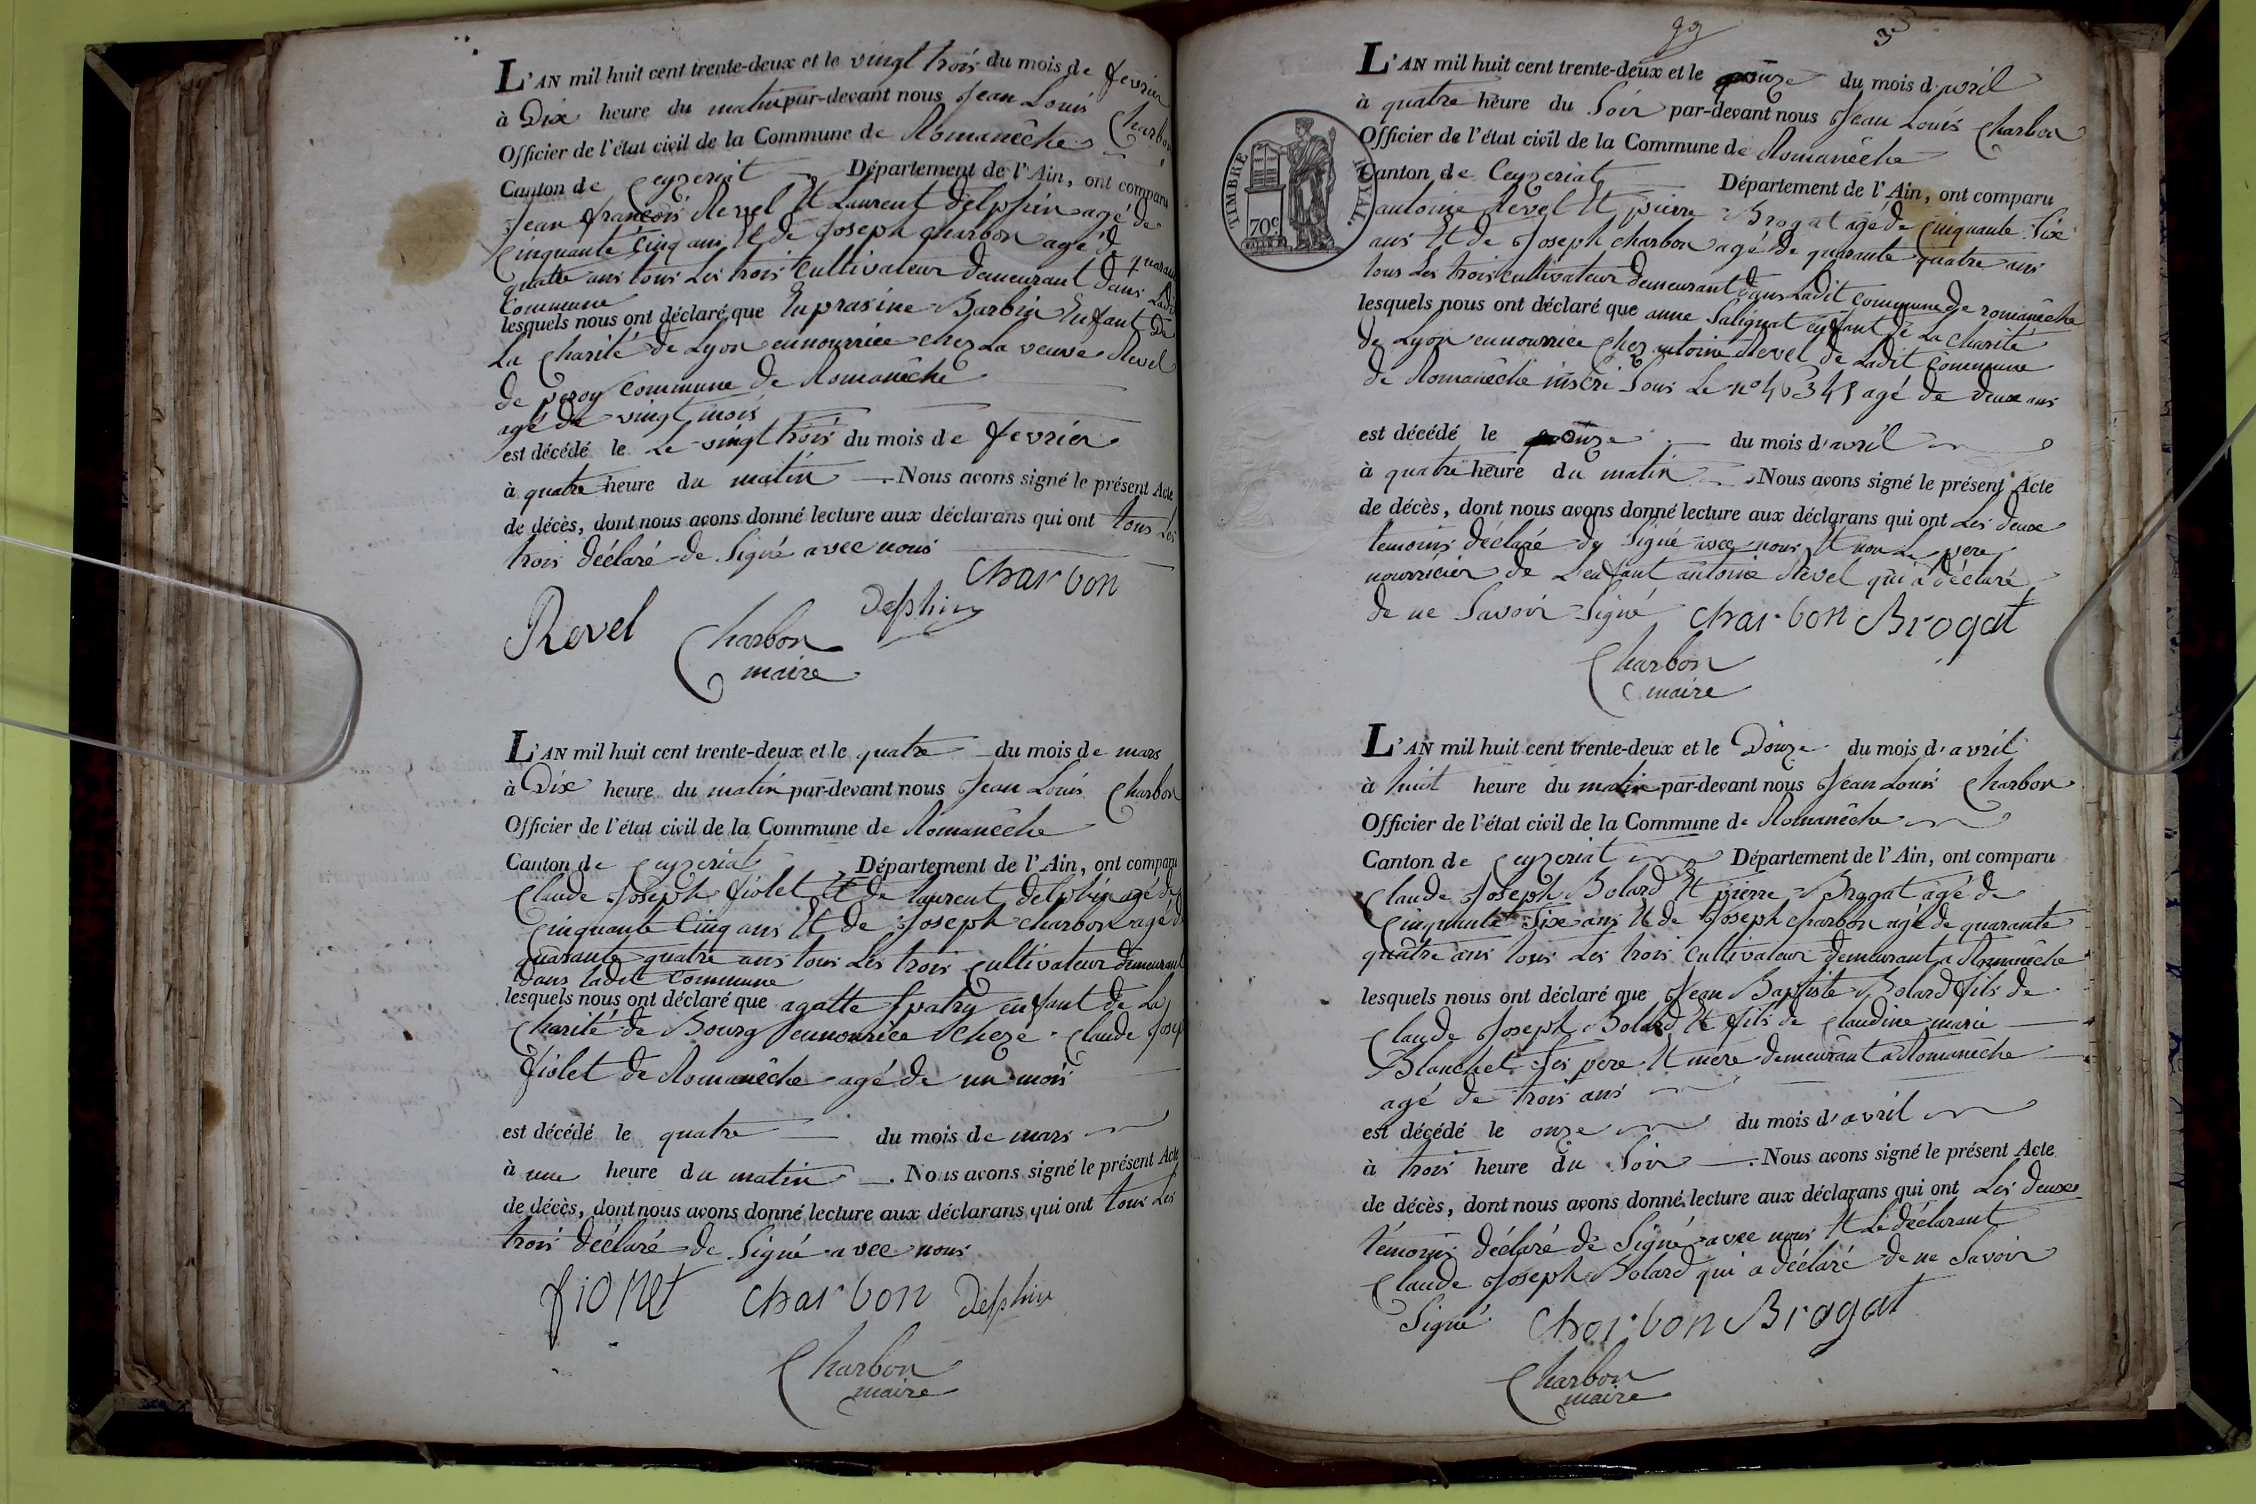 L'AN mil huit cent trente-deux et le vingt trois du mois de fevrier
à Dix heure du matin par-devant nous Jean Louis Charbon
Officier de l'état civil de la Commune de Romanêche
Canton de Ceyzeriat Département de l'Ain, ont comparu
Jean françois Revel Et Laurent delphin agé de
Cinquante Cinq ans Et de Joseph charbon agé de quarante
quatre ans tous Les trois Cultivateur demeurant dans Ladit
Commune
lesquels nous ont déclaré que Euprasine Barbin Enfant De
La Charité de Lyon ennourrice chez La veuve Revel
de Commune de Romanêche
agé de vingt mois
est décédé le Le vingt trois du mois de fevrier
à quatre heure du matin Nous avons signé le présent Acte
de décès, dont nous avons donné lecture aux déclarans qui ont tous Les
trois déclaré de Signé avec nous
Charbon
Revel Charbon delphin
maire
L'AN mil huit cent trente-deux et le quatre du mois de mars
à Dix heure du matin par-devant nous Jean Louis Charbon
Officier de l'état civil de la Commune de Romanêche
Canton de Ceyzeriat Département de l'Ain, ont comparu
Claude Joseph fiolet Et de laurent delphin agé de
Cinquante Cinq ans Et de Joseph charbon agé de
quarante quatre ans tous Les trois Cultivateur demeurant
dans ladit Commune
lesquels nous ont déclaré que agatte enfant de La
Charité de Bourg ennourrice Cheze Claude Josep
fiolet de Romanêche agé de un mois
est décédé le quatre du mois de mars
à une heure du matin Nous avons signé le présent Acte
de décès, dont nous avons donné lecture aux déclarans qui ont tous Les
trois déclaré de Signé avec nous
Charbon delphin
Charbon
maire
99 3
TIMBRE ROYAL
70c
L'AN mil huit cent trente-deux et le onze du mois d'avril
à quatre heure du Soir par-devant nous Jean Louis Charbon
Officier de l'état civil de la Commune de Romanêche
Canton de Ceyzeriat Département de l'Ain, ont comparu
antoine Revel Et pierre Brogat agé de Cinquante Six
ans Et de Joseph charbon agé de quarante quatre ans
tous Les trois cultivateur demeurant dans Ladit Commune de romanêche
lesquels nous ont déclaré que anne Salignat enfant de La charité
de Lyon ennourrice Chez antoine Revel de Ladit Commune
de Romanêche inscri Sous Le n° agé de deux ans
est décédé le onze du mois d'avril
à quatre heure du matin Nous avons signé le présent Acte
de décès, dont nous avons donné lecture aux déclarans qui ont Les deuxe
temoins déclaré de Signé avec nous Et non Le pere
nourricier de L'enfant antoine Revel qui a déclaré
de ne Savoir Signé Charbon Brogat
Charbon
maire
L'AN mil huit cent trente-deux et le Douze du mois d'avril
à huit heure du matin par-devant nous Jean Louis Charbon
Officier de l'état civil de la Commune de Romanêche
Canton de Ceyzeriat Département de l'Ain, ont comparu
Claude Joseph Bolard Et pierre Brogat agé de
Cinquante Six ans Et de Joseph charbon agé de quarante
quatre ans tous Les trois Cultivateur demeurant a Romanêche
lesquels nous ont déclaré que Jean Baptiste Bolard fils de
Claude Joseph Bolard Et fils de Claudine marie
Blanchet Ses pere Et mere demeurant a Romanêche
agé de trois ans
est décédé le onze du mois d'avril
à trois heure du Soir Nous avons signé le présent Acte
de décès, dont nous avons donné lecture aux déclarans qui ont Les deuxe
témoins déclaré de Signé avec nous Et Le déclarant
Claude Joseph Bolard qui a déclaré de ne Savoir
Signé Charbon Brogat
Charbon
maire